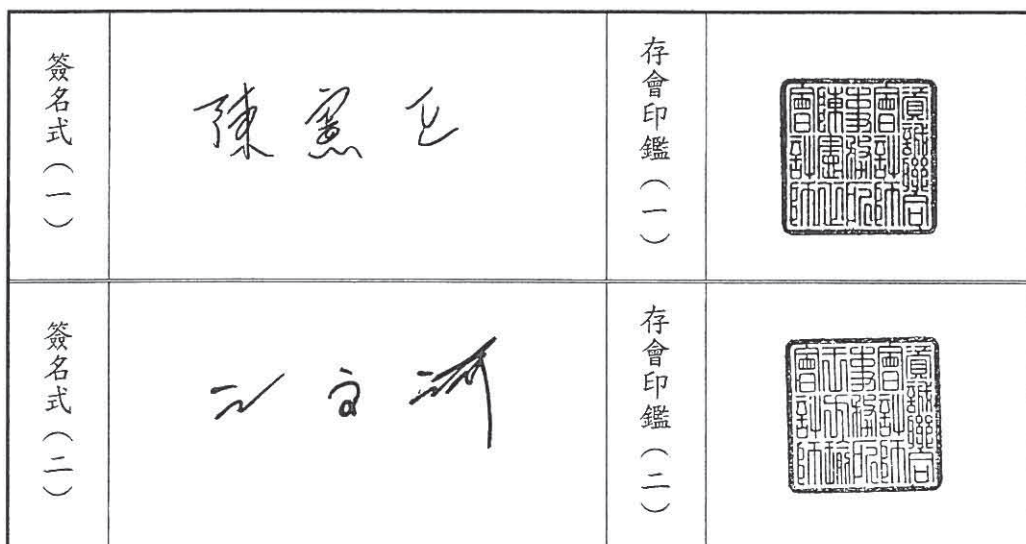 簽名式（一）
陳憲正
存會印鑑（一）
資誠聯合
會計師
事務所
陳憲正
會計師
簽名式（二）
存會印鑑（二）
資誠聯合
會計師
事務所
王方瑜
會計師